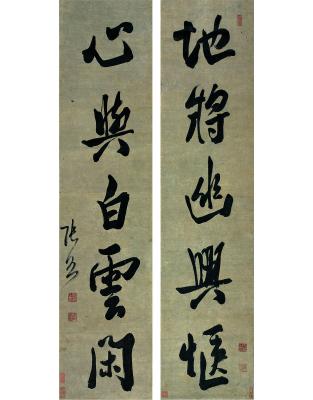 地將幽興愜
心與白雲閑
張照